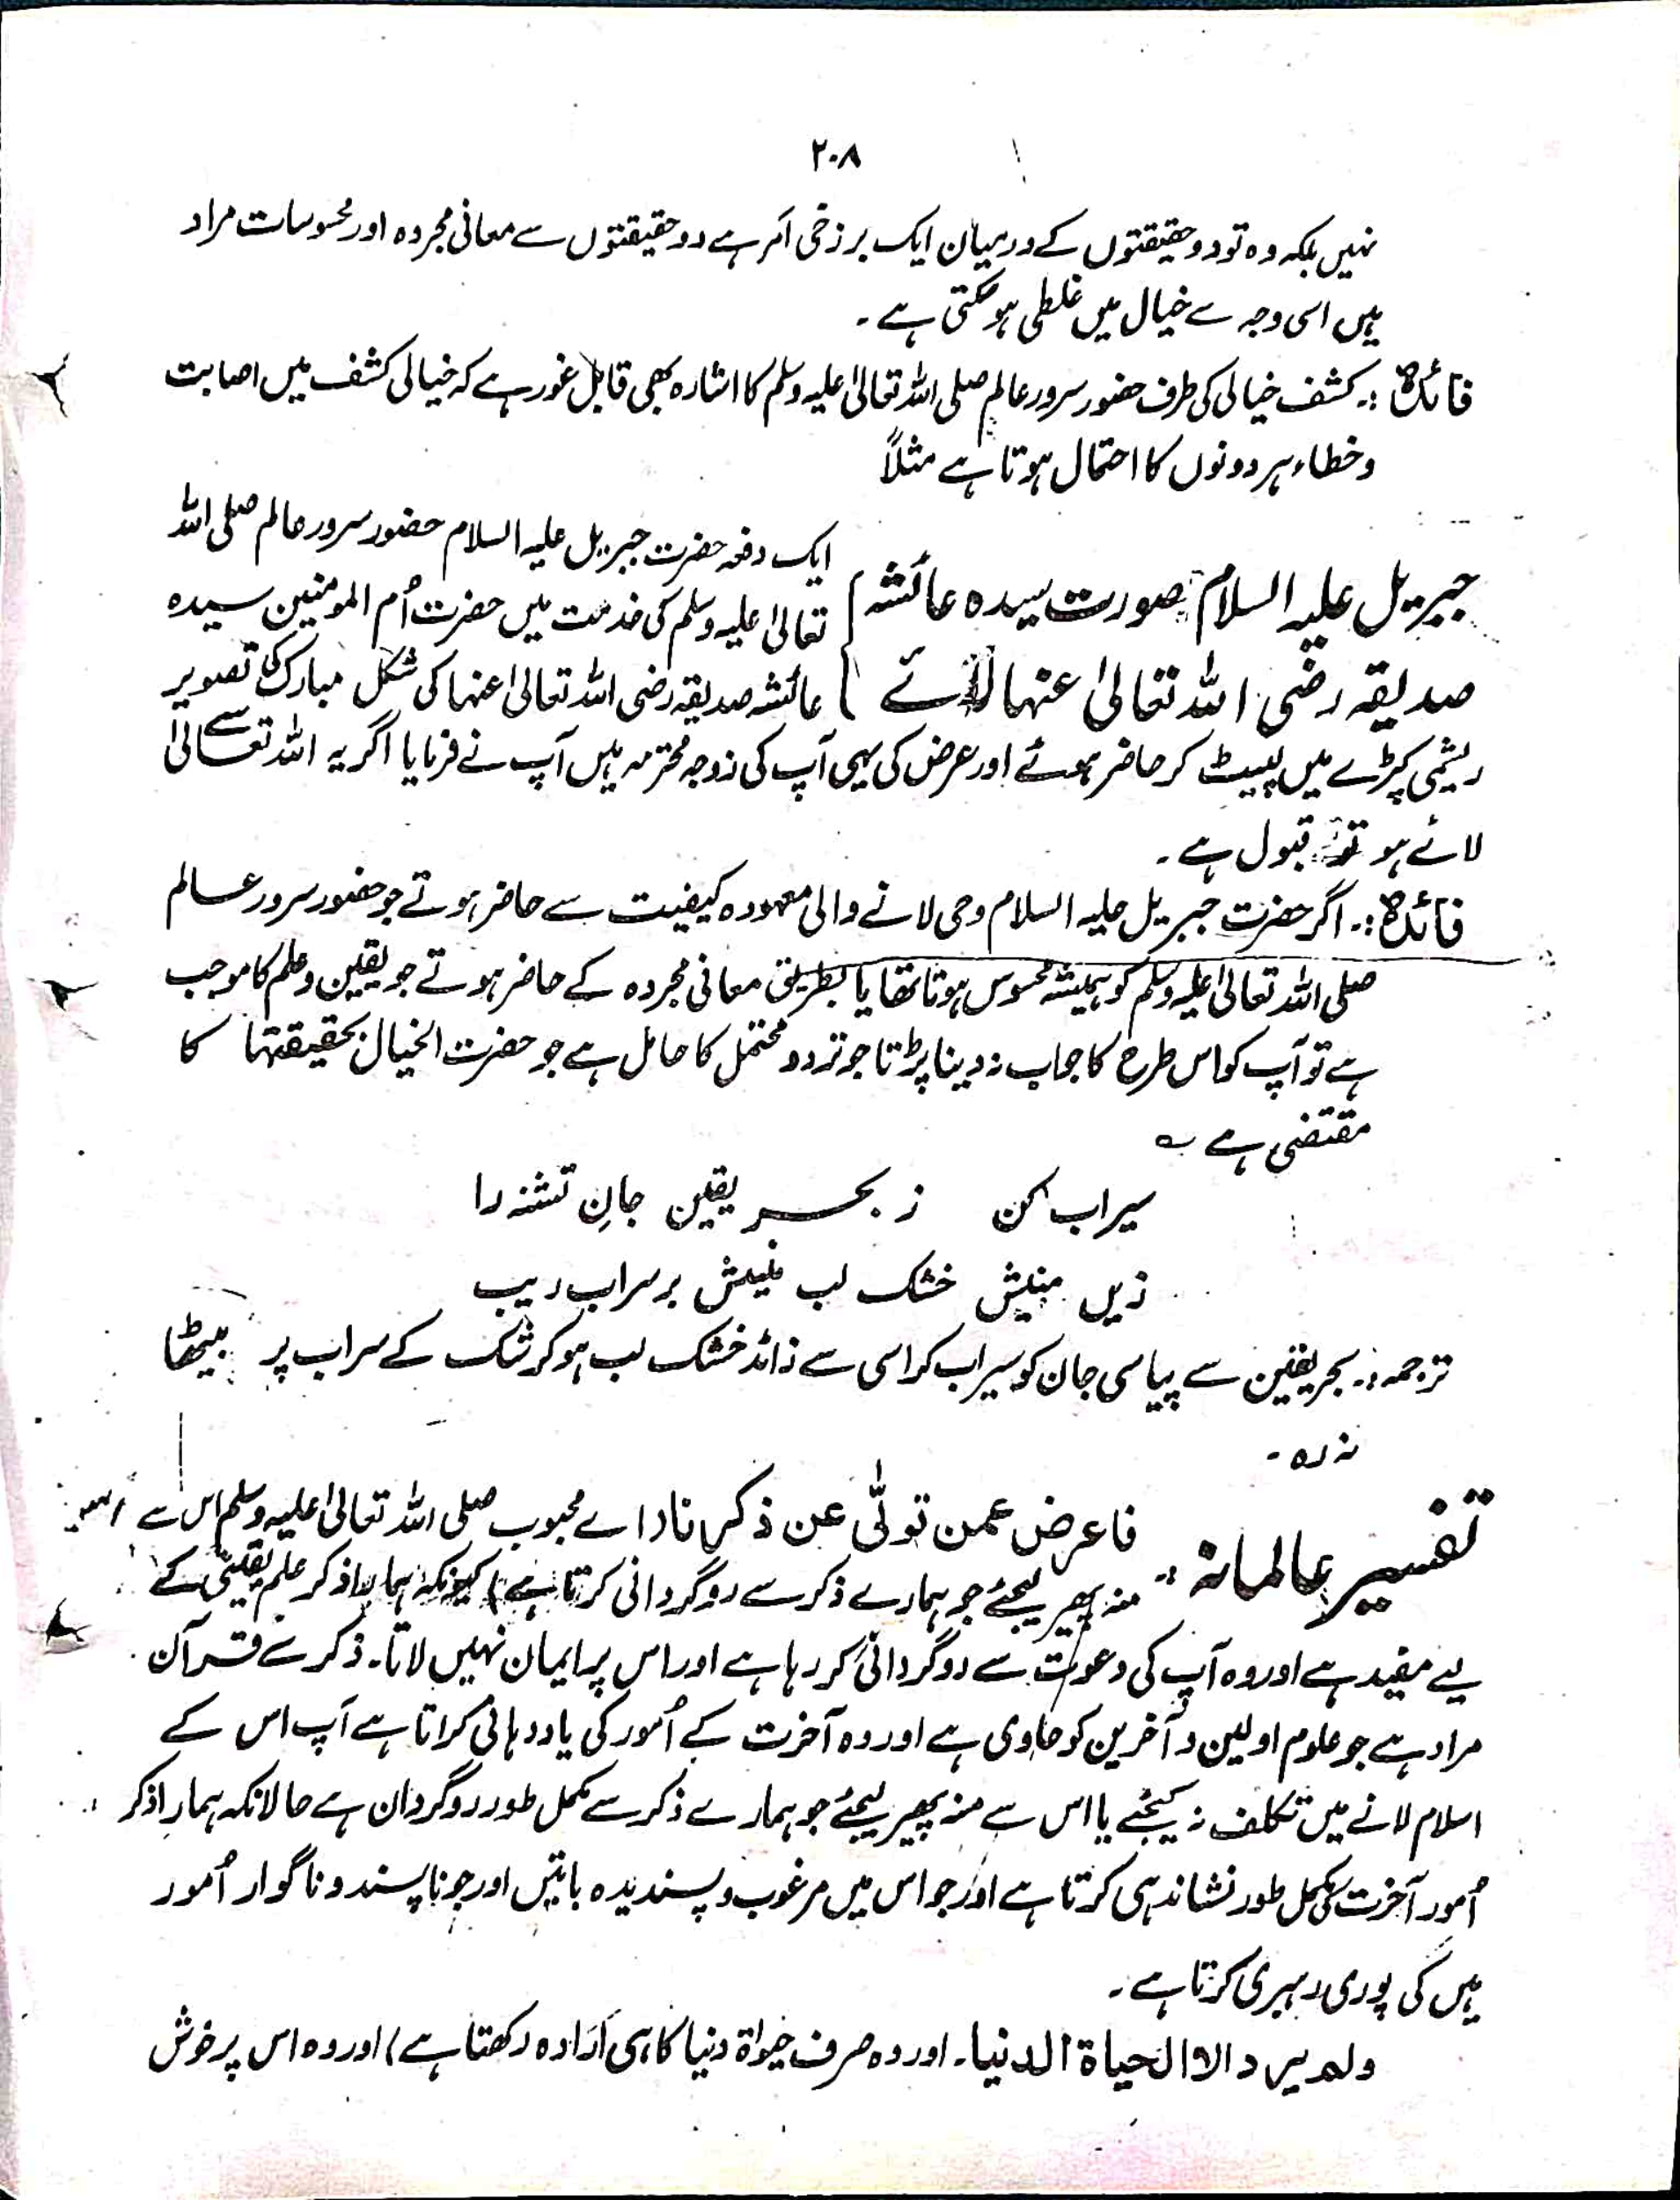 ۲۰۸
نہیں بلکہ وہ تو دو حقیقتوں کے درمیان ایک برزخی امر ہے دو حقیقتوں سے معانی مجردہ اور محسوسات مراد
ہیں اسی وجہ سے خیال میں غلطی ہو سکتی ہے ۔
فائدہ :۔ کشف خیالی کی طرف حضور سرور عالم صلی اللہ تعالیٰ علیہ وسلم کا اشارہ بھی قابل غور ہے کہ خیالی کشف میں اصابت
و خطاء ہر دونوں کا احتمال ہوتا ہے مثلاً
جبریل علیہ السلام بصورت سیدہ عائشہ
صدیقہ رضی اللہ تعالیٰ عنہا لائے
ایک دفعہ حضرت جبریل علیہ السلام حضور سرور عالم صلی اللہ
تعالیٰ علیہ وسلم کی خدمت میں حضرت اُم المومنین سیدہ
عائشہ صدیقہ رضی اللہ تعالیٰ عنہا کی شکل مبارک کی تصویر
ریشمی کپڑے میں لپیٹ کر حاضر ہوئے اور عرض کی یہی آپ کی زوجہ محترمہ ہیں آپ نے فرمایا اگر یہ اللہ تعالیٰ سے
لائے ہو تو قبول ہے ۔
فائدہ :۔ اگر حضرت جبریل علیہ السلام وحی لانے والی معہودہ کیفیت سے حاضر ہوتے جو حضور سرور عالم
صلی اللہ تعالیٰ علیہ وسلم کو ہمیشہ محسوس ہوتا تھا یا بطریق معانی مجردہ کے حاضر ہوتے جو یقین و علم کا موجب
ہے تو آپ کو اس طرح کا جواب نہ دینا پڑتا جو تردد محتمل کا حامل ہے جو حضرت الخیال بحقیقتہا کا
مقتضی ہے ؎
سیراب کن ز بحر یقین جانِ تشنہ را
زیں منیش خشک لب منیش بر سراب ریب
ترجمہ :۔ بحر یقین سے پیاسی جان کو سیراب کر اسی سے زائد خشک لب ہو کر شک کے سراب پر بیٹھا
نہ رہ ۔
تفسیر عالمانہ :۔ فاعرض عمن تولّٰی عن ذکرنا (اے محبوب صلی اللہ تعالیٰ علیہ وسلم اس سے
منہ پھیر لیجئے جو ہمارے ذکر سے روگردانی کرتا ہے) کیونکہ ہمارا ذکر علم یقینی کے
لیے مفید ہے اور وہ آپ کی دعوت سے روگردانی کر رہا ہے اور اس پر ایمان نہیں لاتا۔ ذکر سے قرآن
مراد ہے جو علوم اولین و آخرین کو حاوی ہے اور وہ آخرت کے اُمور کی یاد دہانی کراتا ہے آپ اس کے
اسلام لانے میں تکلف نہ کیجئے یا اس سے منہ پھیر لیجئے جو ہمارے ذکر سے مکمل طور روگردان ہے حالانکہ ہمارا ذکر
اُمور آخرت کی مکمل طور نشاندہی کرتا ہے اور جو اس میں مرغوب و پسندیدہ باتیں اور جو ناپسند و ناگوار اُمور
ہیں کی پوری رہبری کرتا ہے ۔
ولم یرد الا الحیاة الدنیا ۔ اور وہ صرف حیوٰة دنیا کا ہی ارادہ رکھتا ہے) اور وہ اس پر خوش